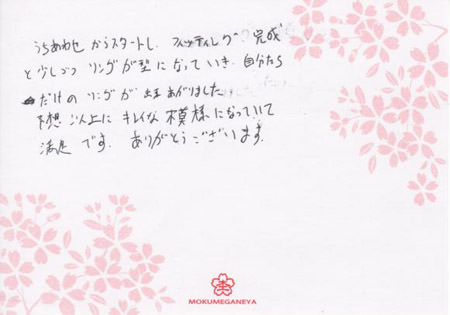 うちあわせからスタートし、フィッティング 完成
と少しづつ リングが型になっていき、自分たち
だけの リングが 出来あがりました
予想以上に キレイな 模様になっていて
満足 です。 ありがとうございます。
MOKUMEGANEYA